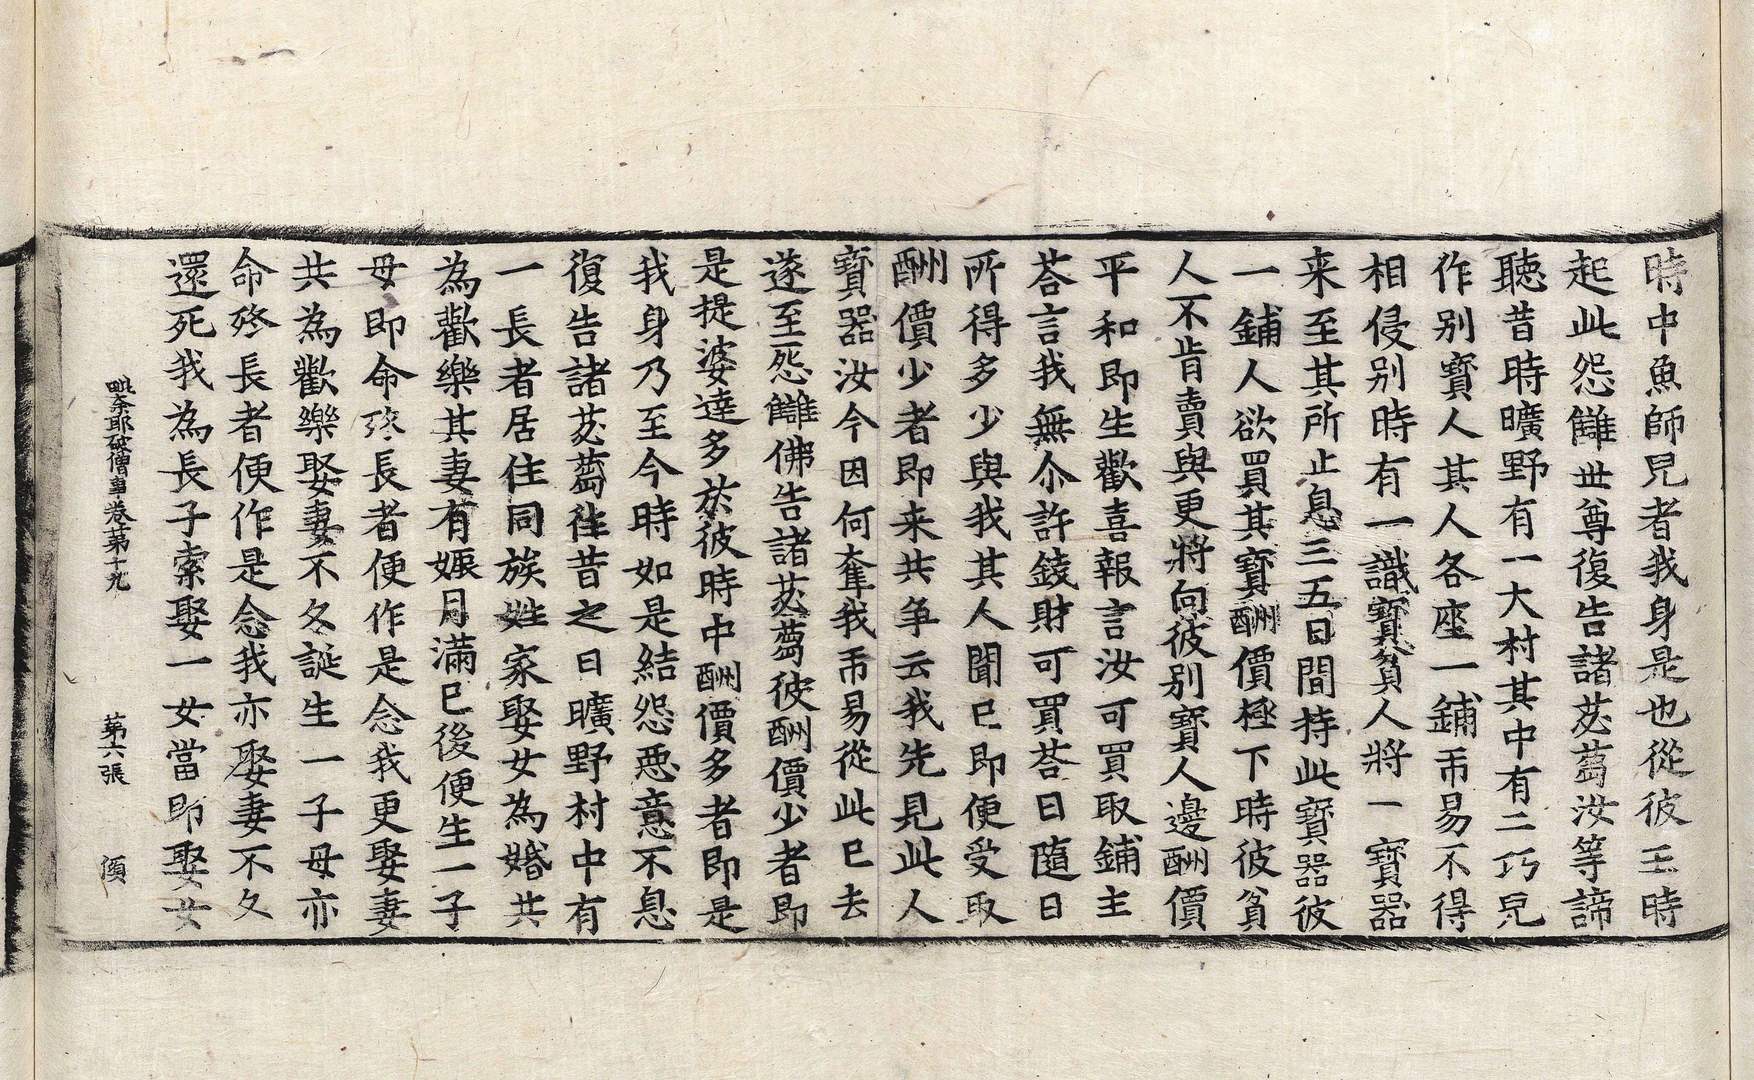 時中魚師兒者我身是也從彼王時
起此怨讎世尊復告諸苾蒭汝等諦
聽昔時曠野有一大村其中有二巧兒
作別寶人其人各座一鋪帀易不得
相侵別時有一識寶貧人將一寶器
来至其所止息三五日間持此寶器彼
一鋪人欲買其寶酬價極下時彼貧
人不肯賣與更將向彼別寶人邊酬價
平和即生歡喜報言汝可買取鋪主
荅言我無尒許錢財可買荅曰隨日
所得多少與我其人聞已即便受取
酬價少者即来共争云我先見此人
寶器汝今因何奪我帀易從此已去
遂至怨讎佛告諸苾蒭彼酬價少者即
是提婆達多於彼時中酬價多者即是
我身乃至今時如是結怨惡意不息
復告諸苾蒭往昔之日曠野村中有
一長者居住同族姓家娶女為婚共
為歡樂其妻有娠月滿已後便生一子
母即命終長者便作是念我更娶妻
共為歡樂娶妻不久誕生一子母亦
命終長者便作是念我亦娶妻不久
還死我為長子索娶一女當即娶女
毗奈耶破僧事卷苐十九 苐六張 傾